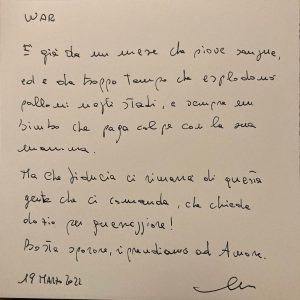 WAR
È già da un mese che piove sangue,
ed è da troppo tempo che esplodono
palloni negli stadi, e sempre un
bimbo che paga colpe con la sua
mamma.
Ma che fiducia ci rimane di questa
gente che ci comanda, che chiede
dazio per guerreggiare!
Basta sparare, riprendiamo ad Amare.
19 Marzo 2022